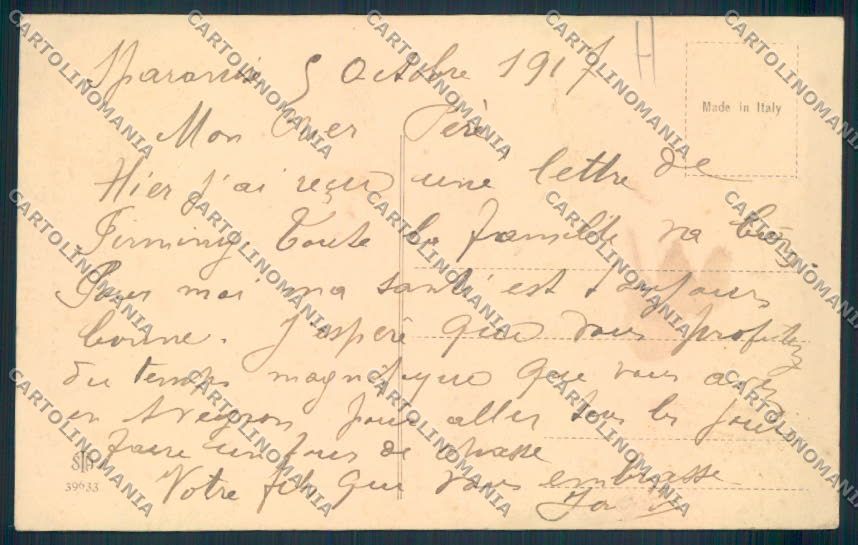 Sparanise 5 Octobre 1917
H
Made in Italy
Mon Cher Père
Hier j'ai reçu une lettre de
Firminy. Toute la famille va bien.
Pour moi ma santé est toujours
bonne. J'espère que vous profitez
du temps magnifique que vous avez
en Aveyron pour aller tous les jours
faire un tour de chasse
Votre fils qui vous embrasse
39633
CARTOLINOMANIA